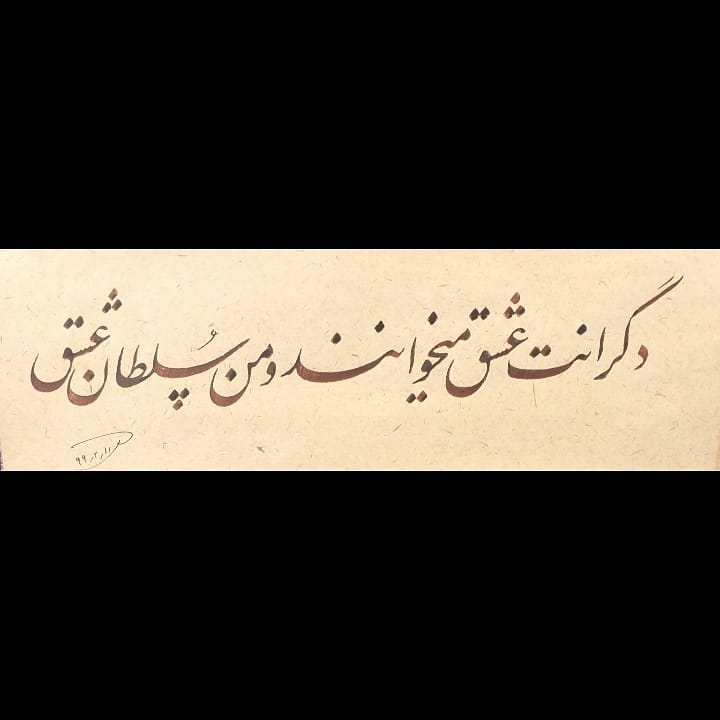 دگرانت عشق میخوانند و من سلطان عشق
۹۹٫۲٫۱۱